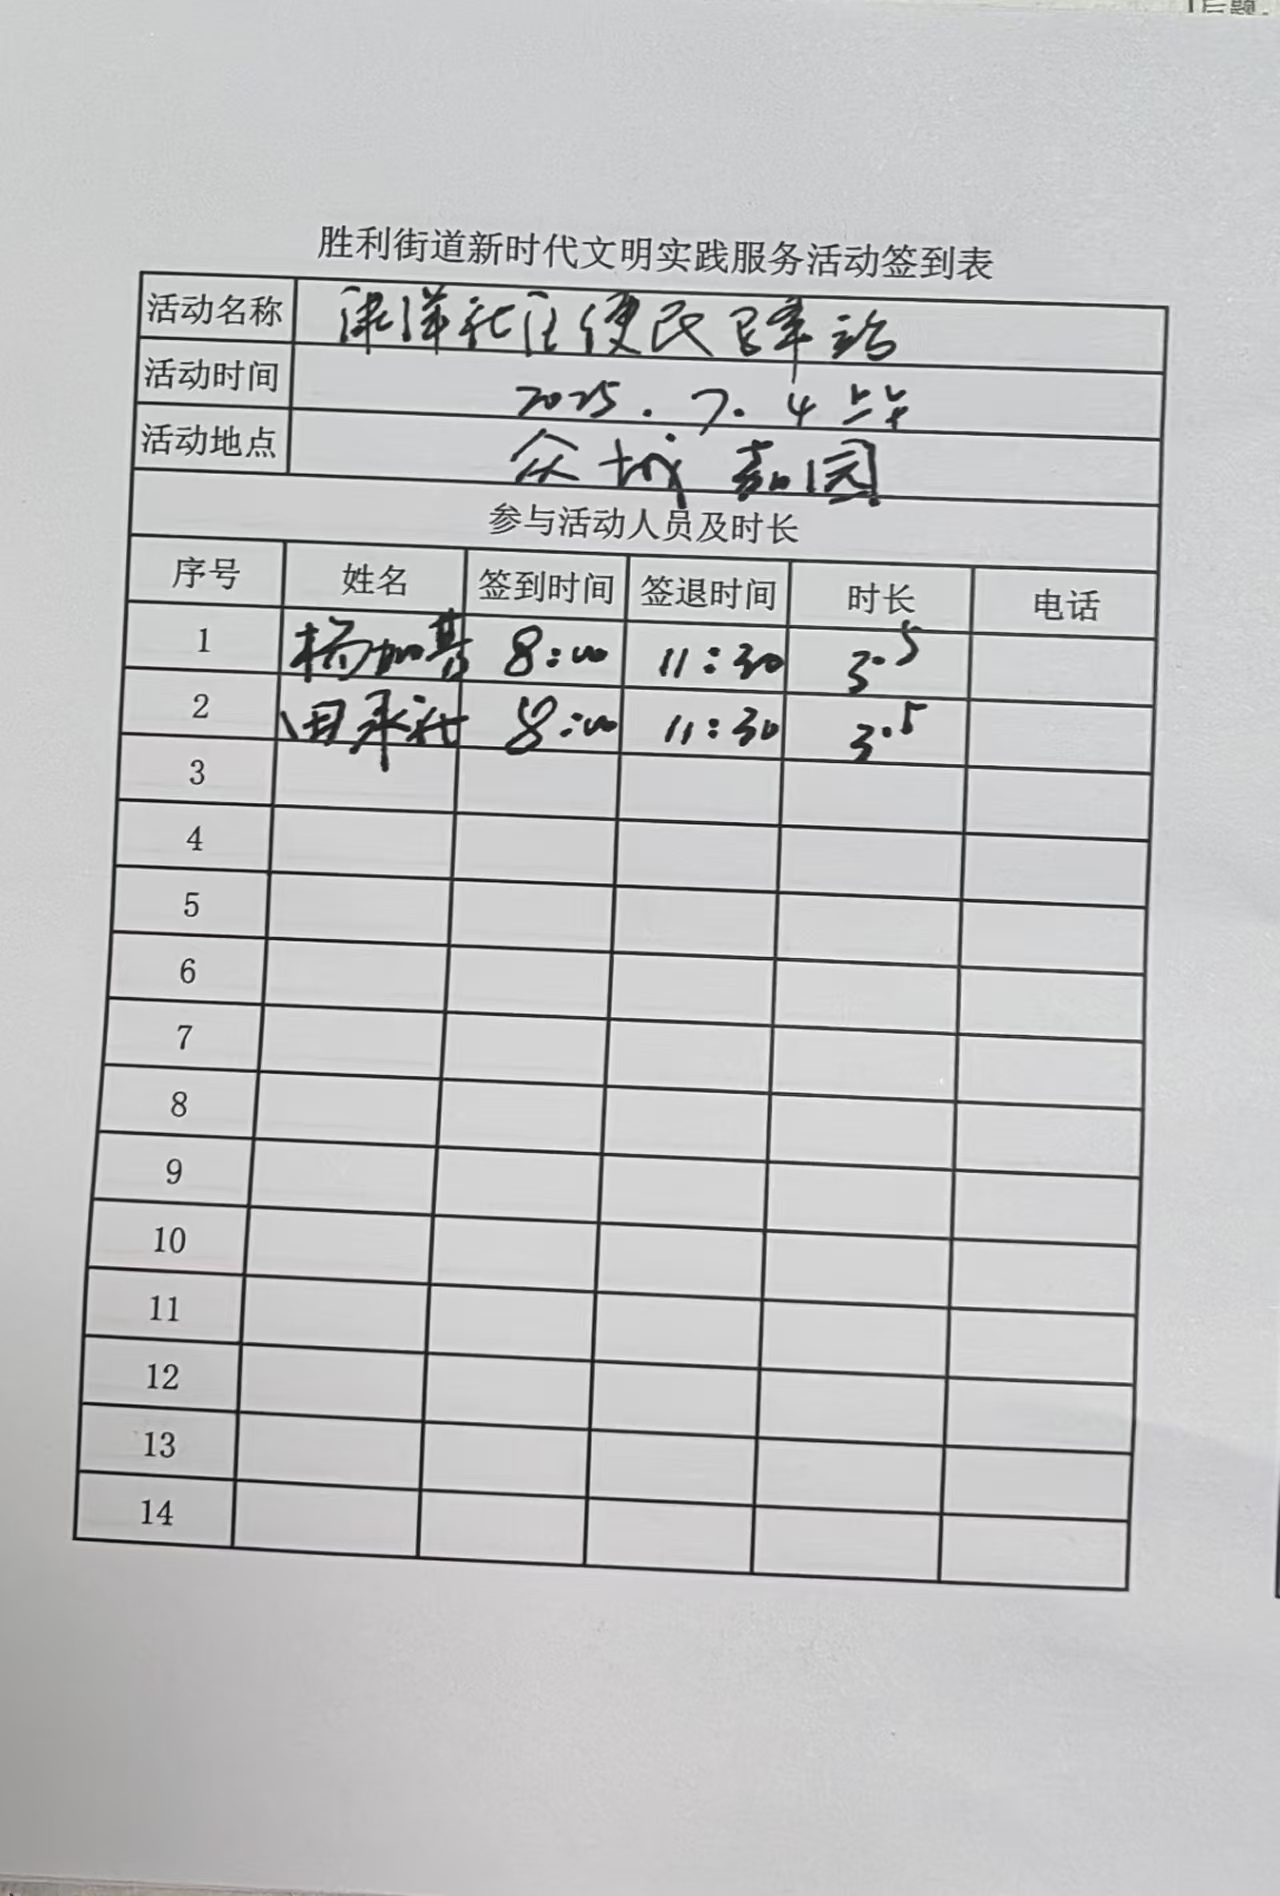 胜利街道新时代文明实践服务活动签到表
活动名称 社区便民驿站
活动时间 2025.7.4
活动地点 众城嘉园
参与活动人员及时长
序号 姓名 签到时间 签退时间 时长 电话
1 杨加 8:00 11:30 3.5
2 田承社 8:00 11:30 3.5
3
4
5
6
7
8
9
10
11
12
13
14